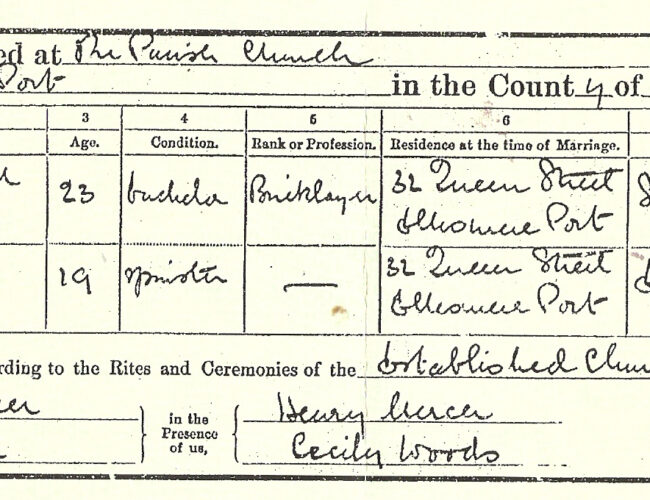 ed at The Parish Church
Port in the County of
3 4 5 6
Age. Condition. Rank or Profession. Residence at the time of Marriage.
23 bachelor Bricklayer 32 Queen Street
Ellesmere Port
19 spinster — 32 Queen Street
Ellesmere Port
rding to the Rites and Ceremonies of the Established Chur
cer in the Presence of us, Henry Mercer
Cecily Woods